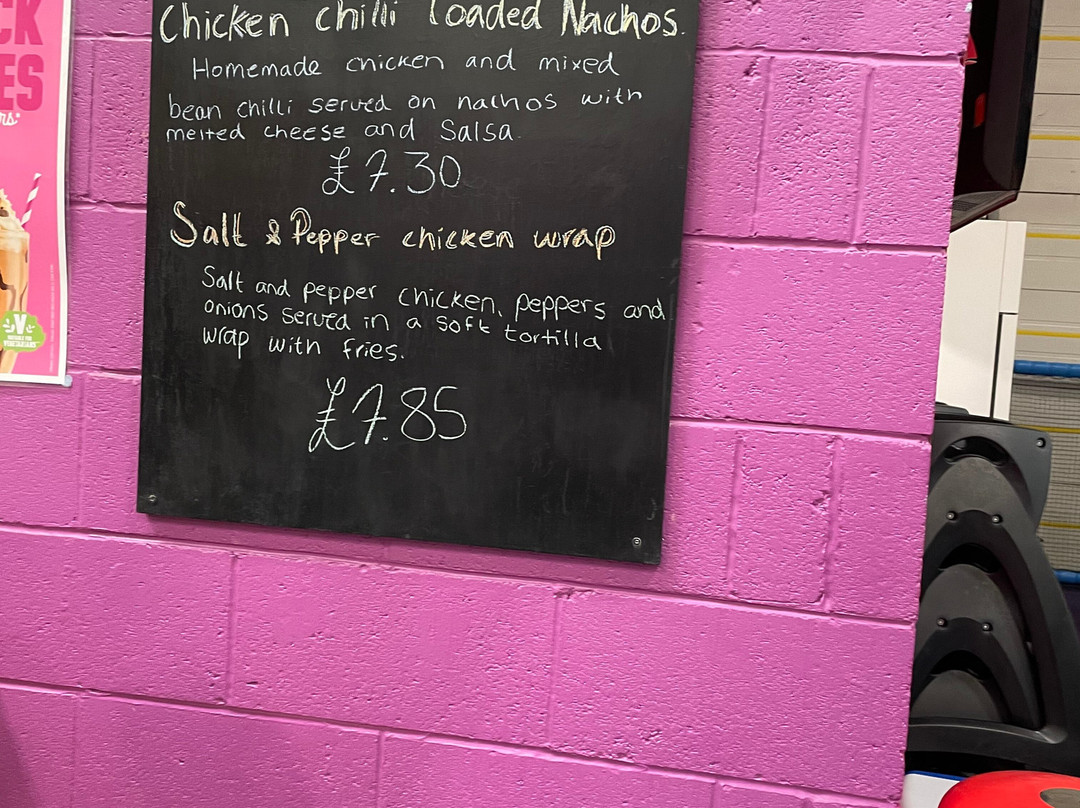 CK
ES
Chicken chilli loaded Nachos.
Homemade chicken and mixed
bean chilli served on nachos with
melted cheese and Salsa.
£7.30
Salt & Pepper chicken wrap
Salt and pepper chicken, peppers and
onions served in a soft tortilla
wrap with fries.
£7.85
V
SUITABLE FOR
VEGETARIANS